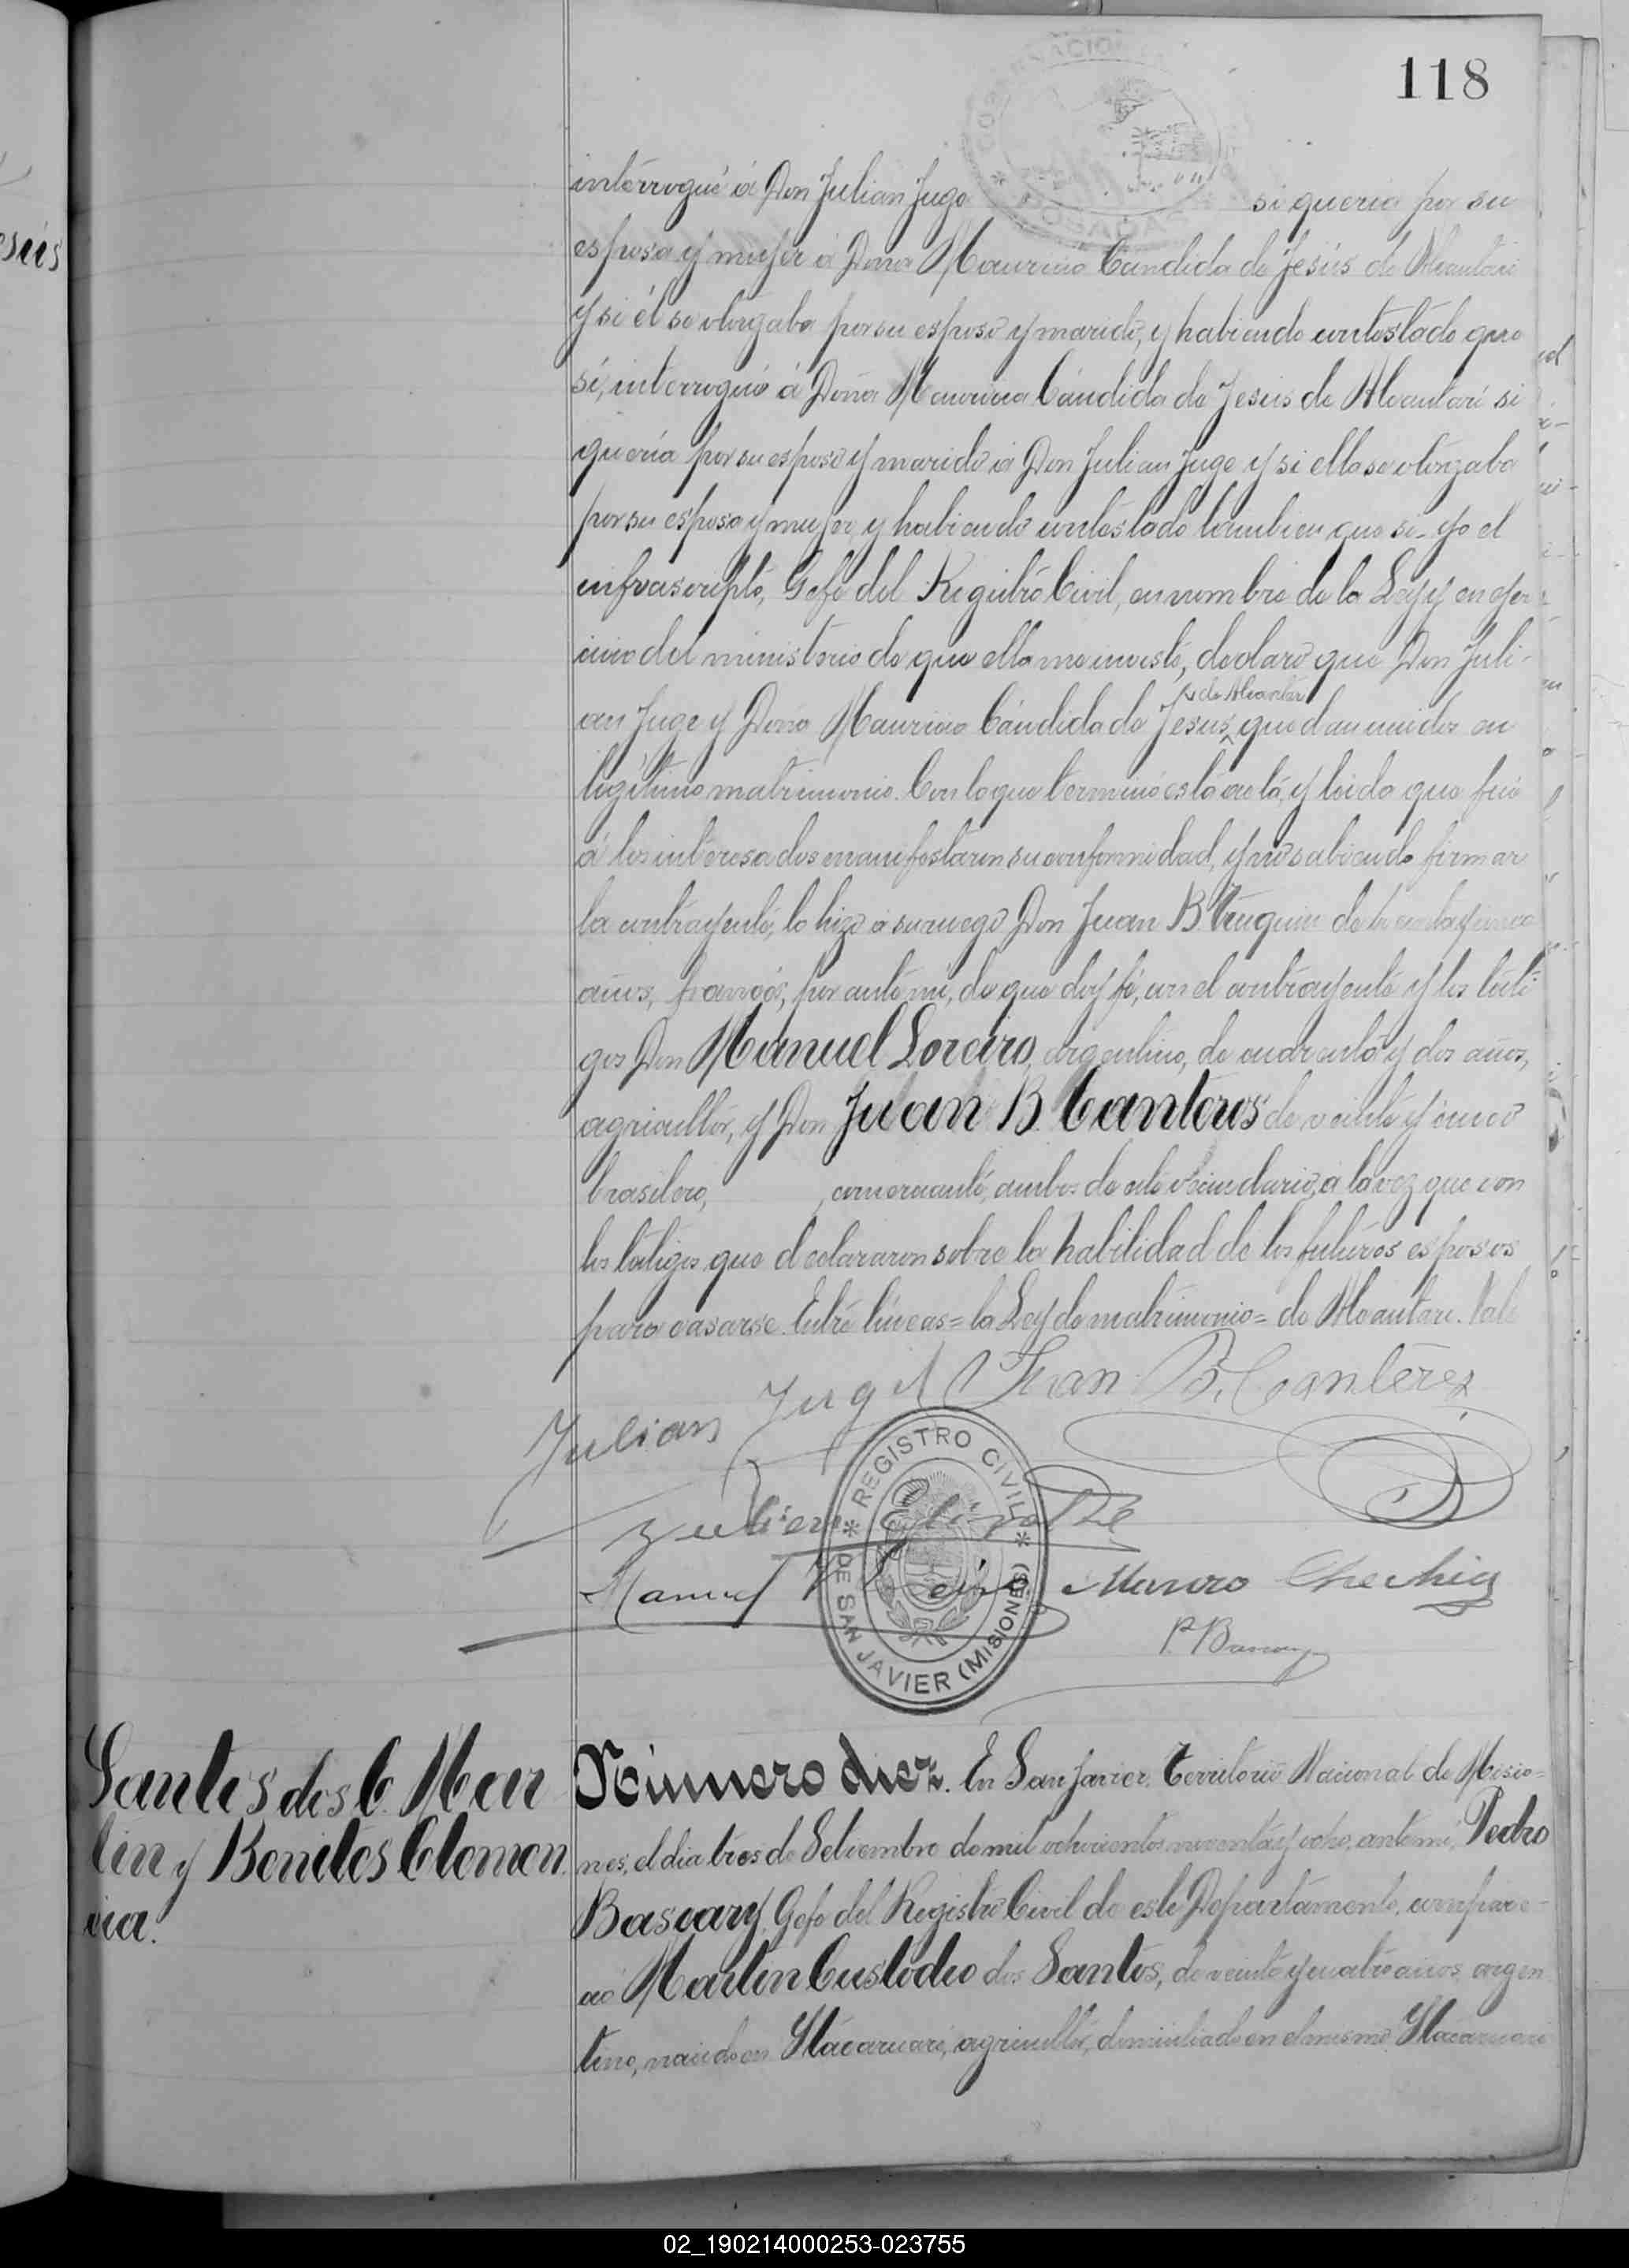 118
interrogué á Don Julian Juge si queria por su
esposa y mujer á Doña Mauricia Cándida de Jesús de Alcantari
y si él se otorgaba por su esposo y marido, y habiendo contestado que
sí, interrogué á Doña Mauricia Cándida de Jesus de Alcantari si
queria por su esposo y marido á Don Julian Juge y si ella se otorgaba
por su esposa y mujer, y habiendo contestado tambien que si yo el
infrascripto, Gefe del Registro Civil, en nombre de la Ley y en ejer
cicio del ministerio de que ella me inviste, declaro que Don Juli-
de Alcantari
an Juge y Doña Mauricia Cándida de Jesus, quedan unidos en
legítimo matrimonio. Con lo que terminó esta acta, y leida que fué
á los interesados manifestaron su conformidad, y no sabiendo firmar
la contrayente, lo hizo á su ruego Don Juan B. de treinta y cinco
años, francés, por ante mi, de que doy fé, con el contrayente y los testi-
gos Don Manuel Loreiro, argentino, de cuarenta y dos años,
agricultor, y Don Juan B. Canteros de veinte y cinco
brasilero, , comerciante, ambos de este vecindario, á la vez que con
los testigos que declararon sobre la habilidad de los futuros esposos
para casarse. Entre líneas = la Ley de matrimonio = de Alcantari. Vale
Julian Juge Juan B. Canteros
Manuel
P. Bascary
REGISTRO CIVIL
DE SAN JAVIER (MISIONES)
Santos dos C. Mar
tin y Benites Clemen
cia.
Número diez. En San Javier, Territorio Nacional de Misio-
nes, el dia tres de Setiembre de mil ochocientos noventa y ocho, ante mi, Pedro
Bascary, Gefe del Registro Civil de este Departamento, compare-
ció Martin Custodio dos Santos, de veinte y cuatro años, argen
tino, nacido en Itacaruaré, agricultor, domiciliado en el mismo Itacaruaré
02_190214000253-023755